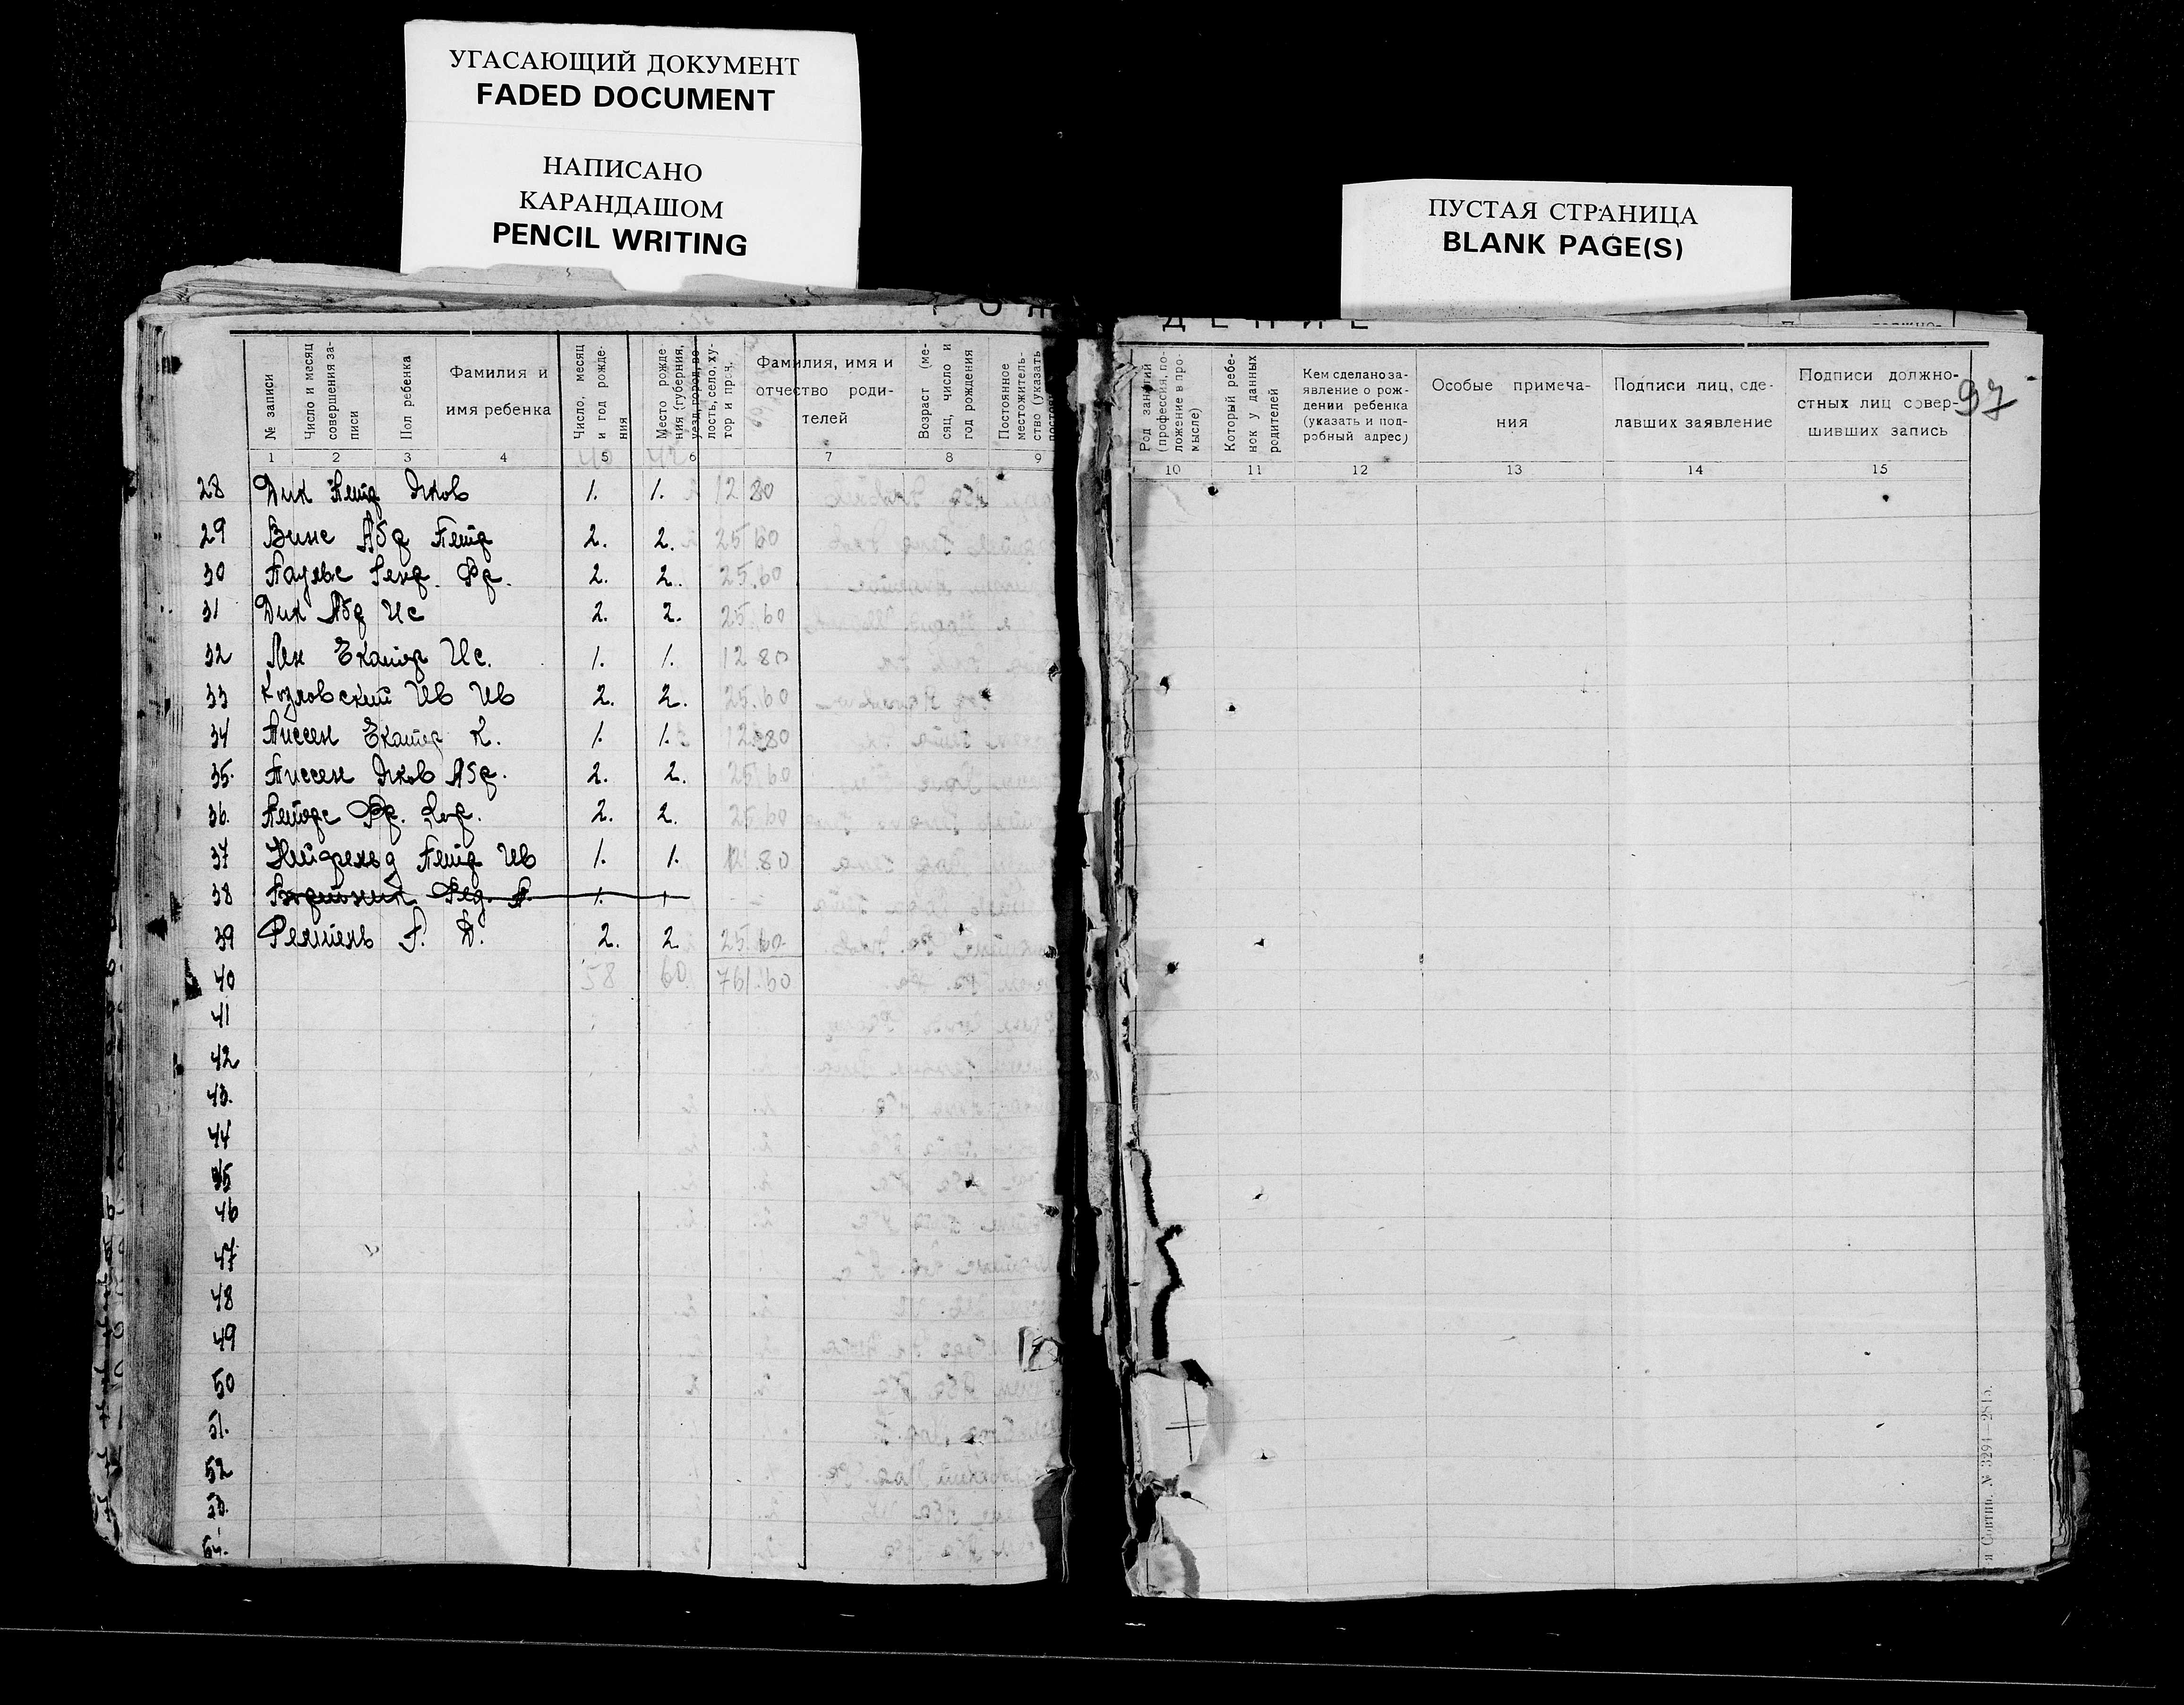 УГАСАЮЩИЙ ДОКУМЕНТ
FADED DOCUMENT
НАПИСАНО
КАРАНДАШОМ
PENCIL WRITING
ПУСТАЯ СТРАНИЦА
BLANK PAGE(S)
РОЖ
ДЕНИЕ
№ записи
Число и месяц
совершения за-
писи
Пол ребенка
Фамилия и
имя ребенка
Число, месяц
и год рожде-
ния
Место рожде-
ния (губерния,
уезд, город, во-
лость, село, ху-
тор и проч.
Фамилия, имя и
отчество роди-
телей
Возраст (ме-
сяц, число и
год рождения
Постоянное
местожитель-
ство (указать
1 2 3 4 5 6 7 8 9
40 42
28 Дик Петр Яков 1. 1. 12 80
29 Винс Абр Петр 2. 2. 25 60
30 Паульс Генр. Фр. 2. 2. 25.60
31 Дик Абр Ис 2. 2. 25.60
32 Лен Екатер Ис. 1. 1. 12 80
33 Козловский Ив Ив 2. 2. 25.60
34 Тиссен Екатер К. 1. 1. 12.80
35. Тиссен Яков Абр. 2. 2. 25.60
36. Петерс Фр. 2. 2. 25.60
37 Нейфельд Петр Ив 1. 1. 12.80
38 1. 1
39 Г. Д. 2. 2 25.60
40 58 60 761.60
41
42
43.
44
45
46
47
48
49
50
51.
52
53.
54.
Род занятий
(профессия, по-
ложение в про-
мысле)
Который ребе-
нок у данных
родителей
Кем сделано за-
явление о рож-
дении ребенка
(указать и под-
робный адрес)
Особые примеча-
ния
Подписи лиц, сде-
лавших заявление
Подписи должно-
стных лиц совер-
шивших запись
97
10 11 12 13 14 15
№ 3294—2815.